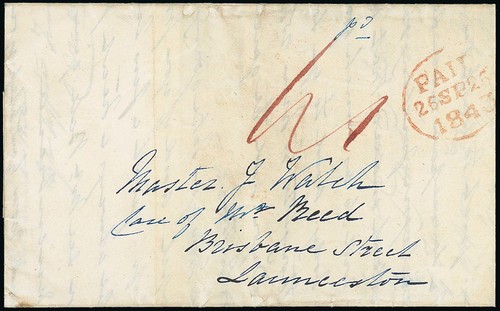 pd
PAID
26 SP 26
184
Master J Walch
Care of Mr Reed
Brisbane Street
Launceston